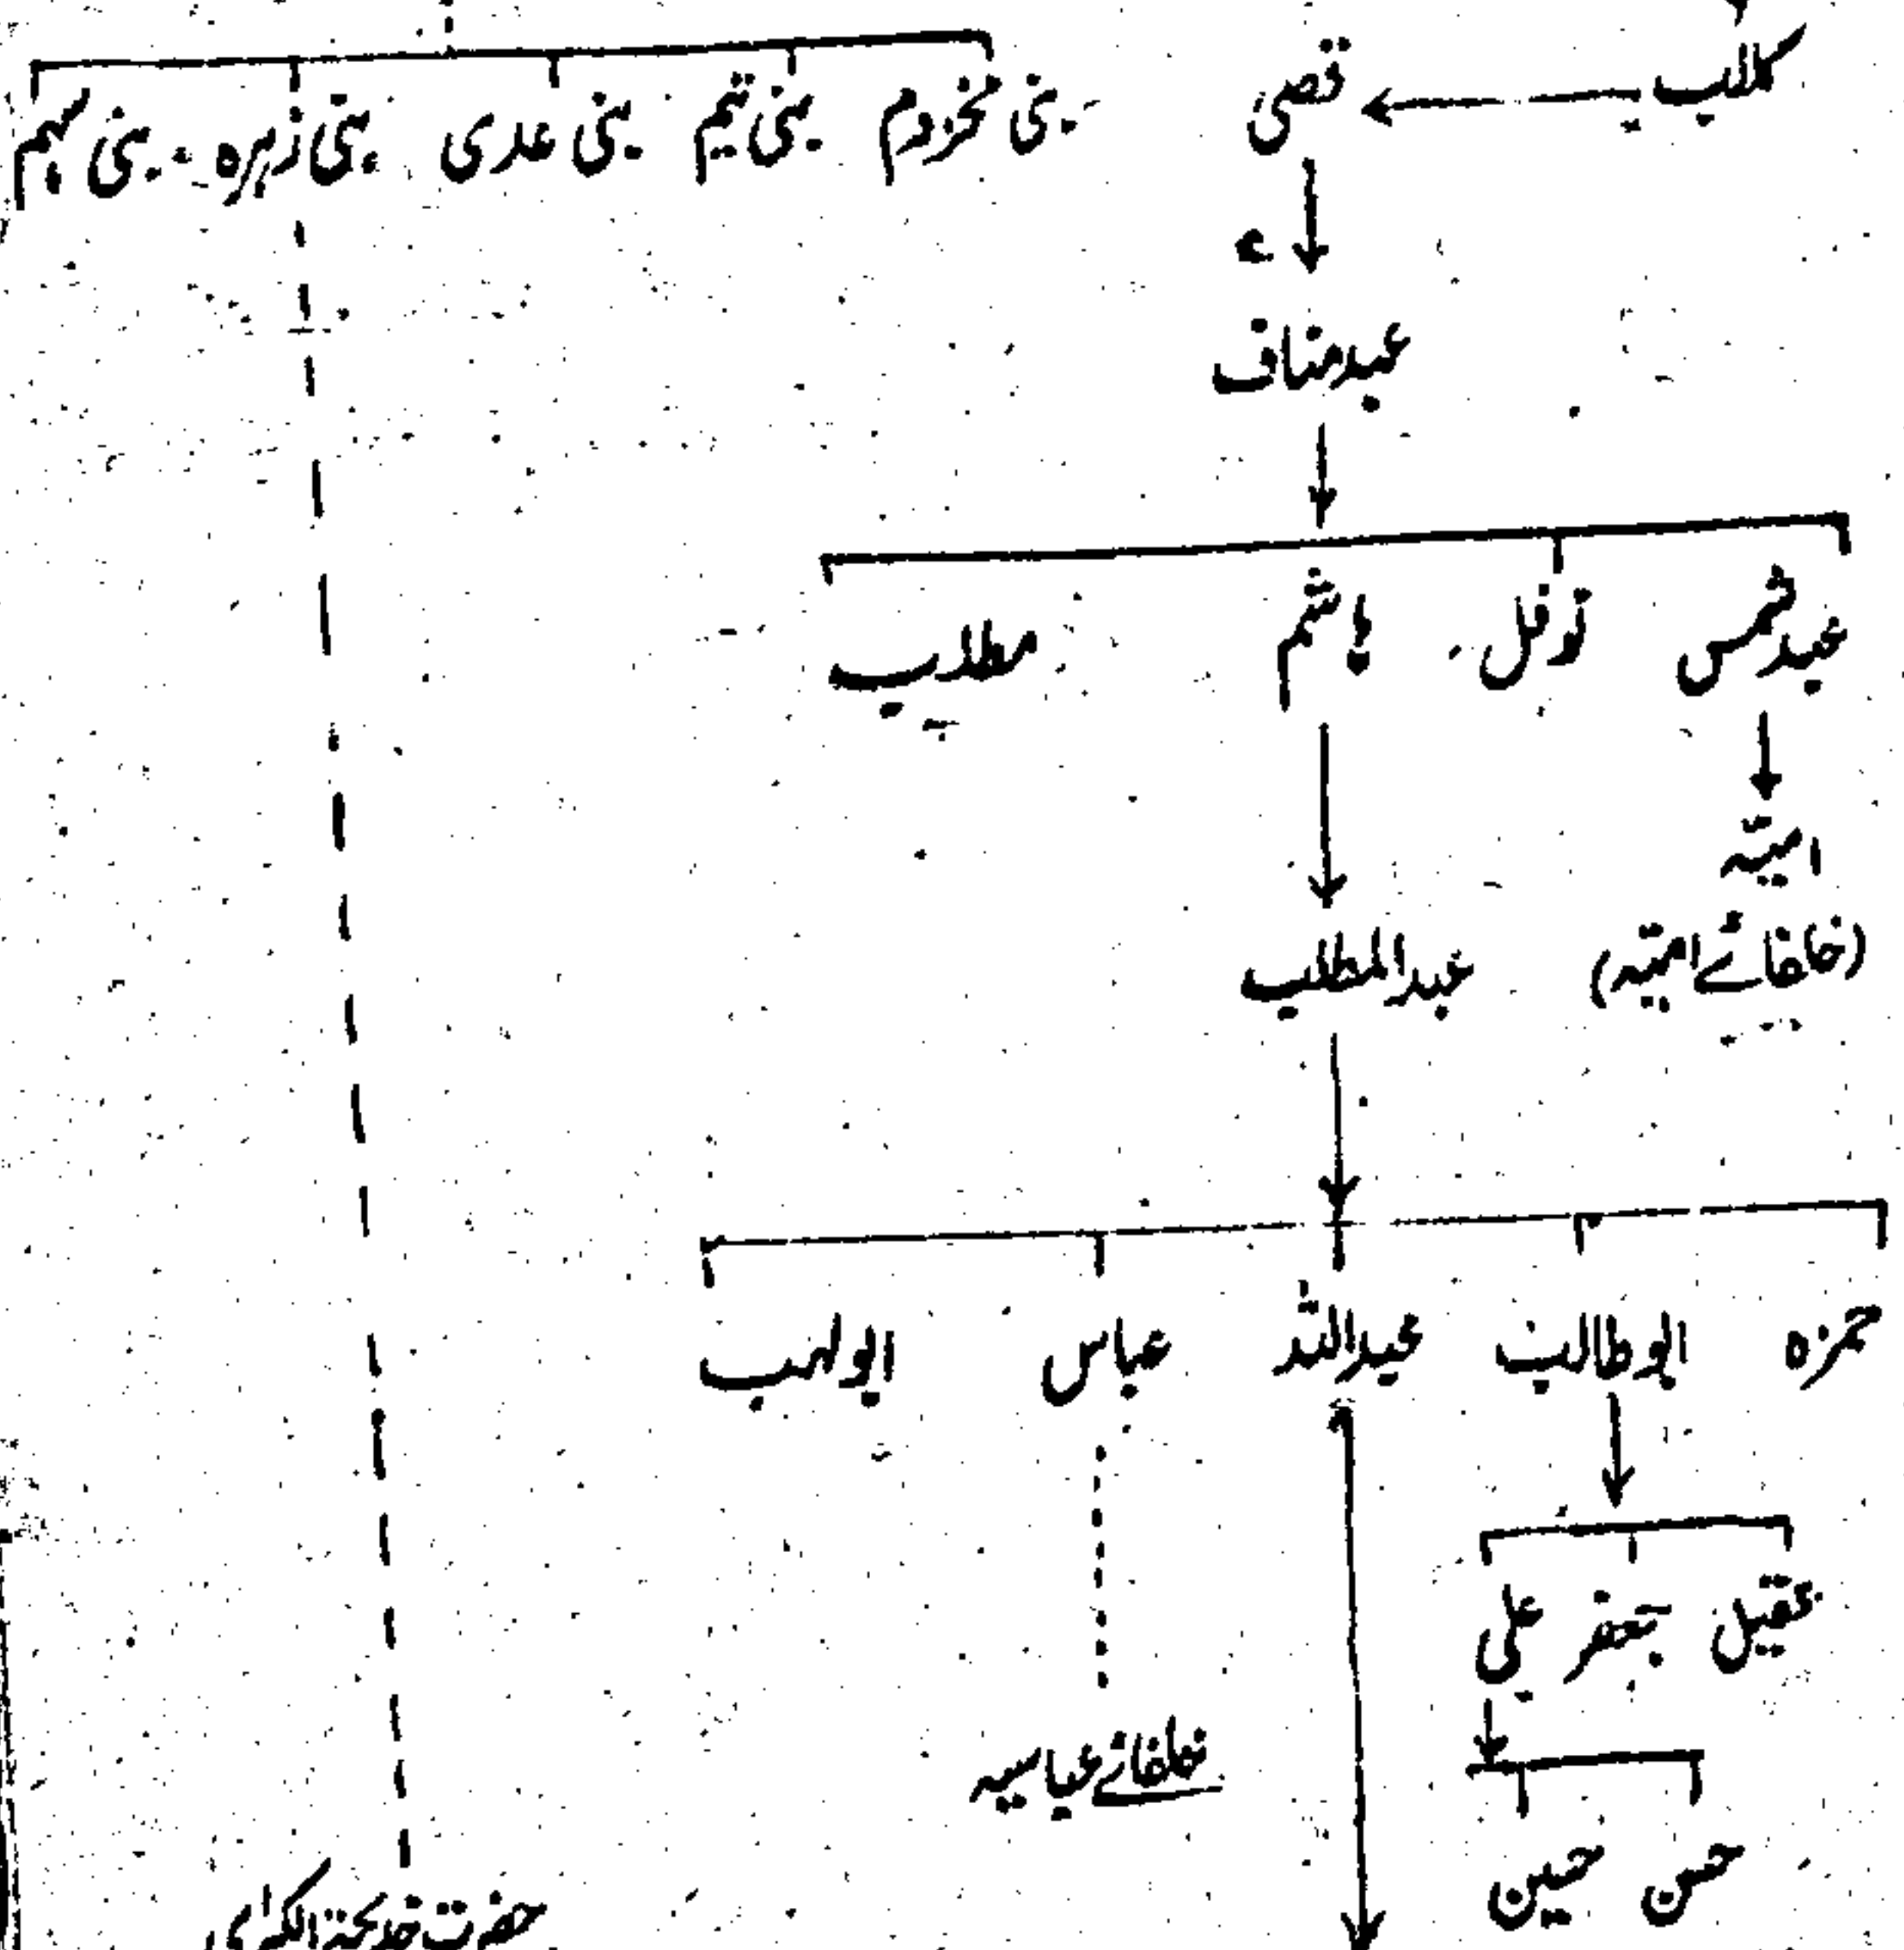 کلاب قصی بنی مخزوم بنی تیم بنی عدی بنی زہرہ بنی سہم
عبدمناف
عبدشمس نوفل ہاشم مطلب
امیّہ
(خلفائے امیّہ) عبدالمطلب
حمزہ ابوطالب عبداللہ عباس ابولہب
عقیل جعفر علی
خلفائے عباسیہ
حسن حسین
حضرت خدیجۃ الکبرای